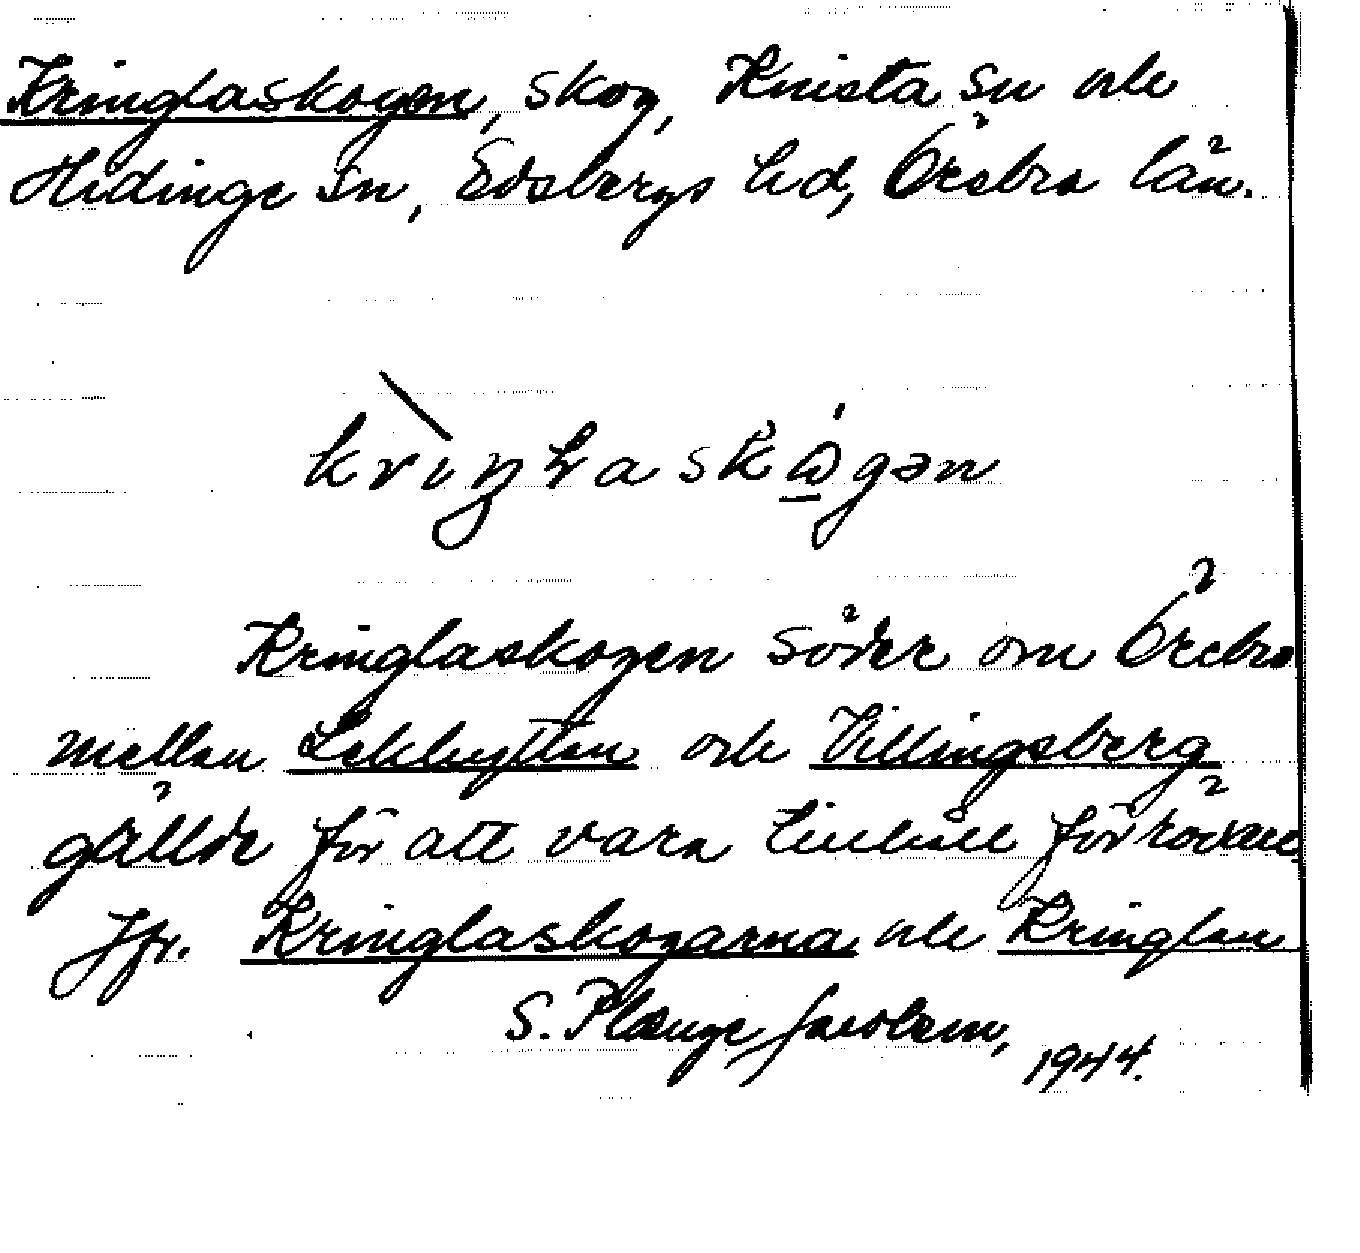 Kringlaskogen, skog, Knista sn och
Hidinge sn, Edsbergs hd, Örebro län.
Kringlaskogen söder om Örebro
mellan Lekhyttan och Villingsberg
gällde för att vara tillhåll för rövare
Jfr. Kringlaskogarna och Kringlan
S. Plænge Jacobson,
1944.